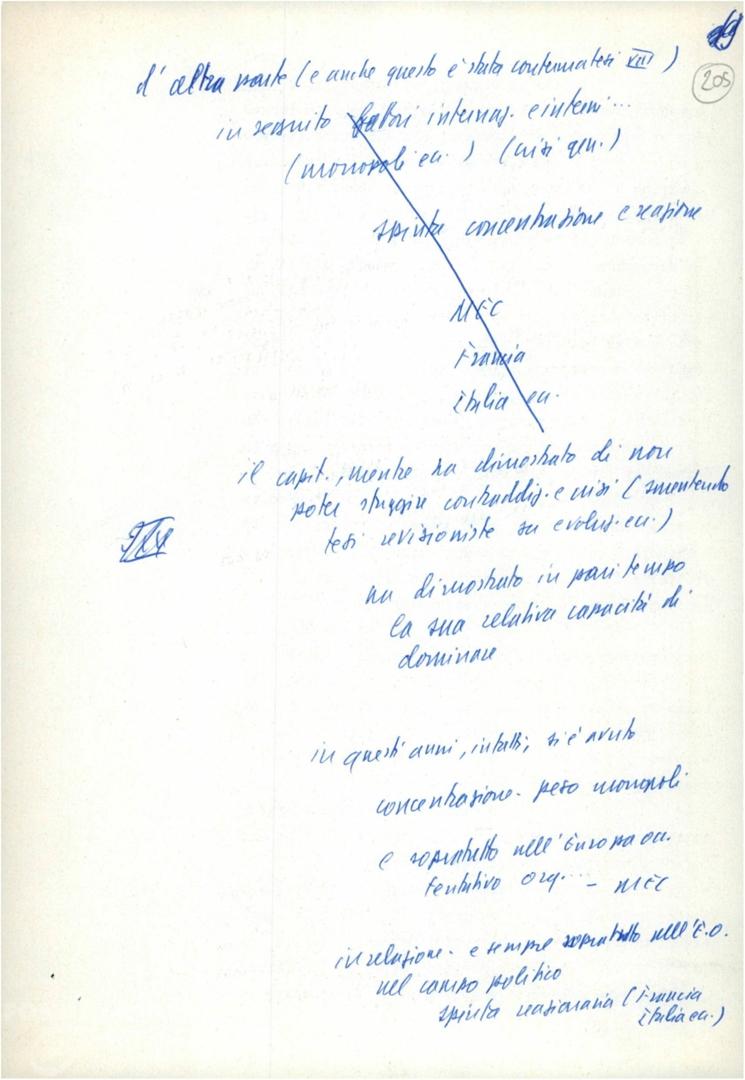 205
d'altra parte (e anche questo è stata conferma tesi VIII)
in seguito fattori internaz. e interni...
(monopoli ecc.) (crisi gen.)
spinta concentrazione e reazione
MEC
Francia
Italia ecc.
il capit., mentre ha dimostrato di non
poter sfuggire contraddiz. e crisi (smentendo
tesi revisioniste su evoluz. ecc.)
ha dimostrato in pari tempo
la sua relativa capacità di
dominare
in questi anni, infatti, si è avuto
concentrazione - peso monopoli
e sopratutto nell'Europa occ.
tentativo org... - MEC
in relazione - e sempre sopratutto nell'E.O.
nel campo politico
spinta reazionaria (Francia
Italia ecc.)